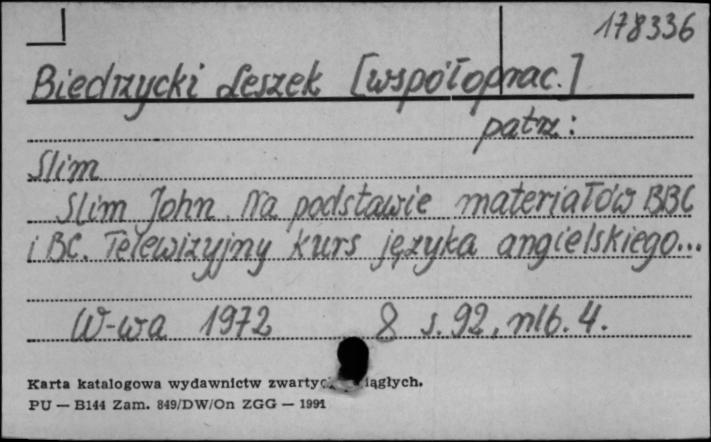 178336
Biedrzycki Leszek [współoprac.]
patrz:
Slim
Slim John. Na podstawie materiałów BBC
i BC. Telewizyjny kurs języka angielskiego...
W-wa 1972 8 s. 92, nlb. 4.
Karta katalogowa wydawnictw
PU — B144 Zam. 849/DW/On ZGG — 1991